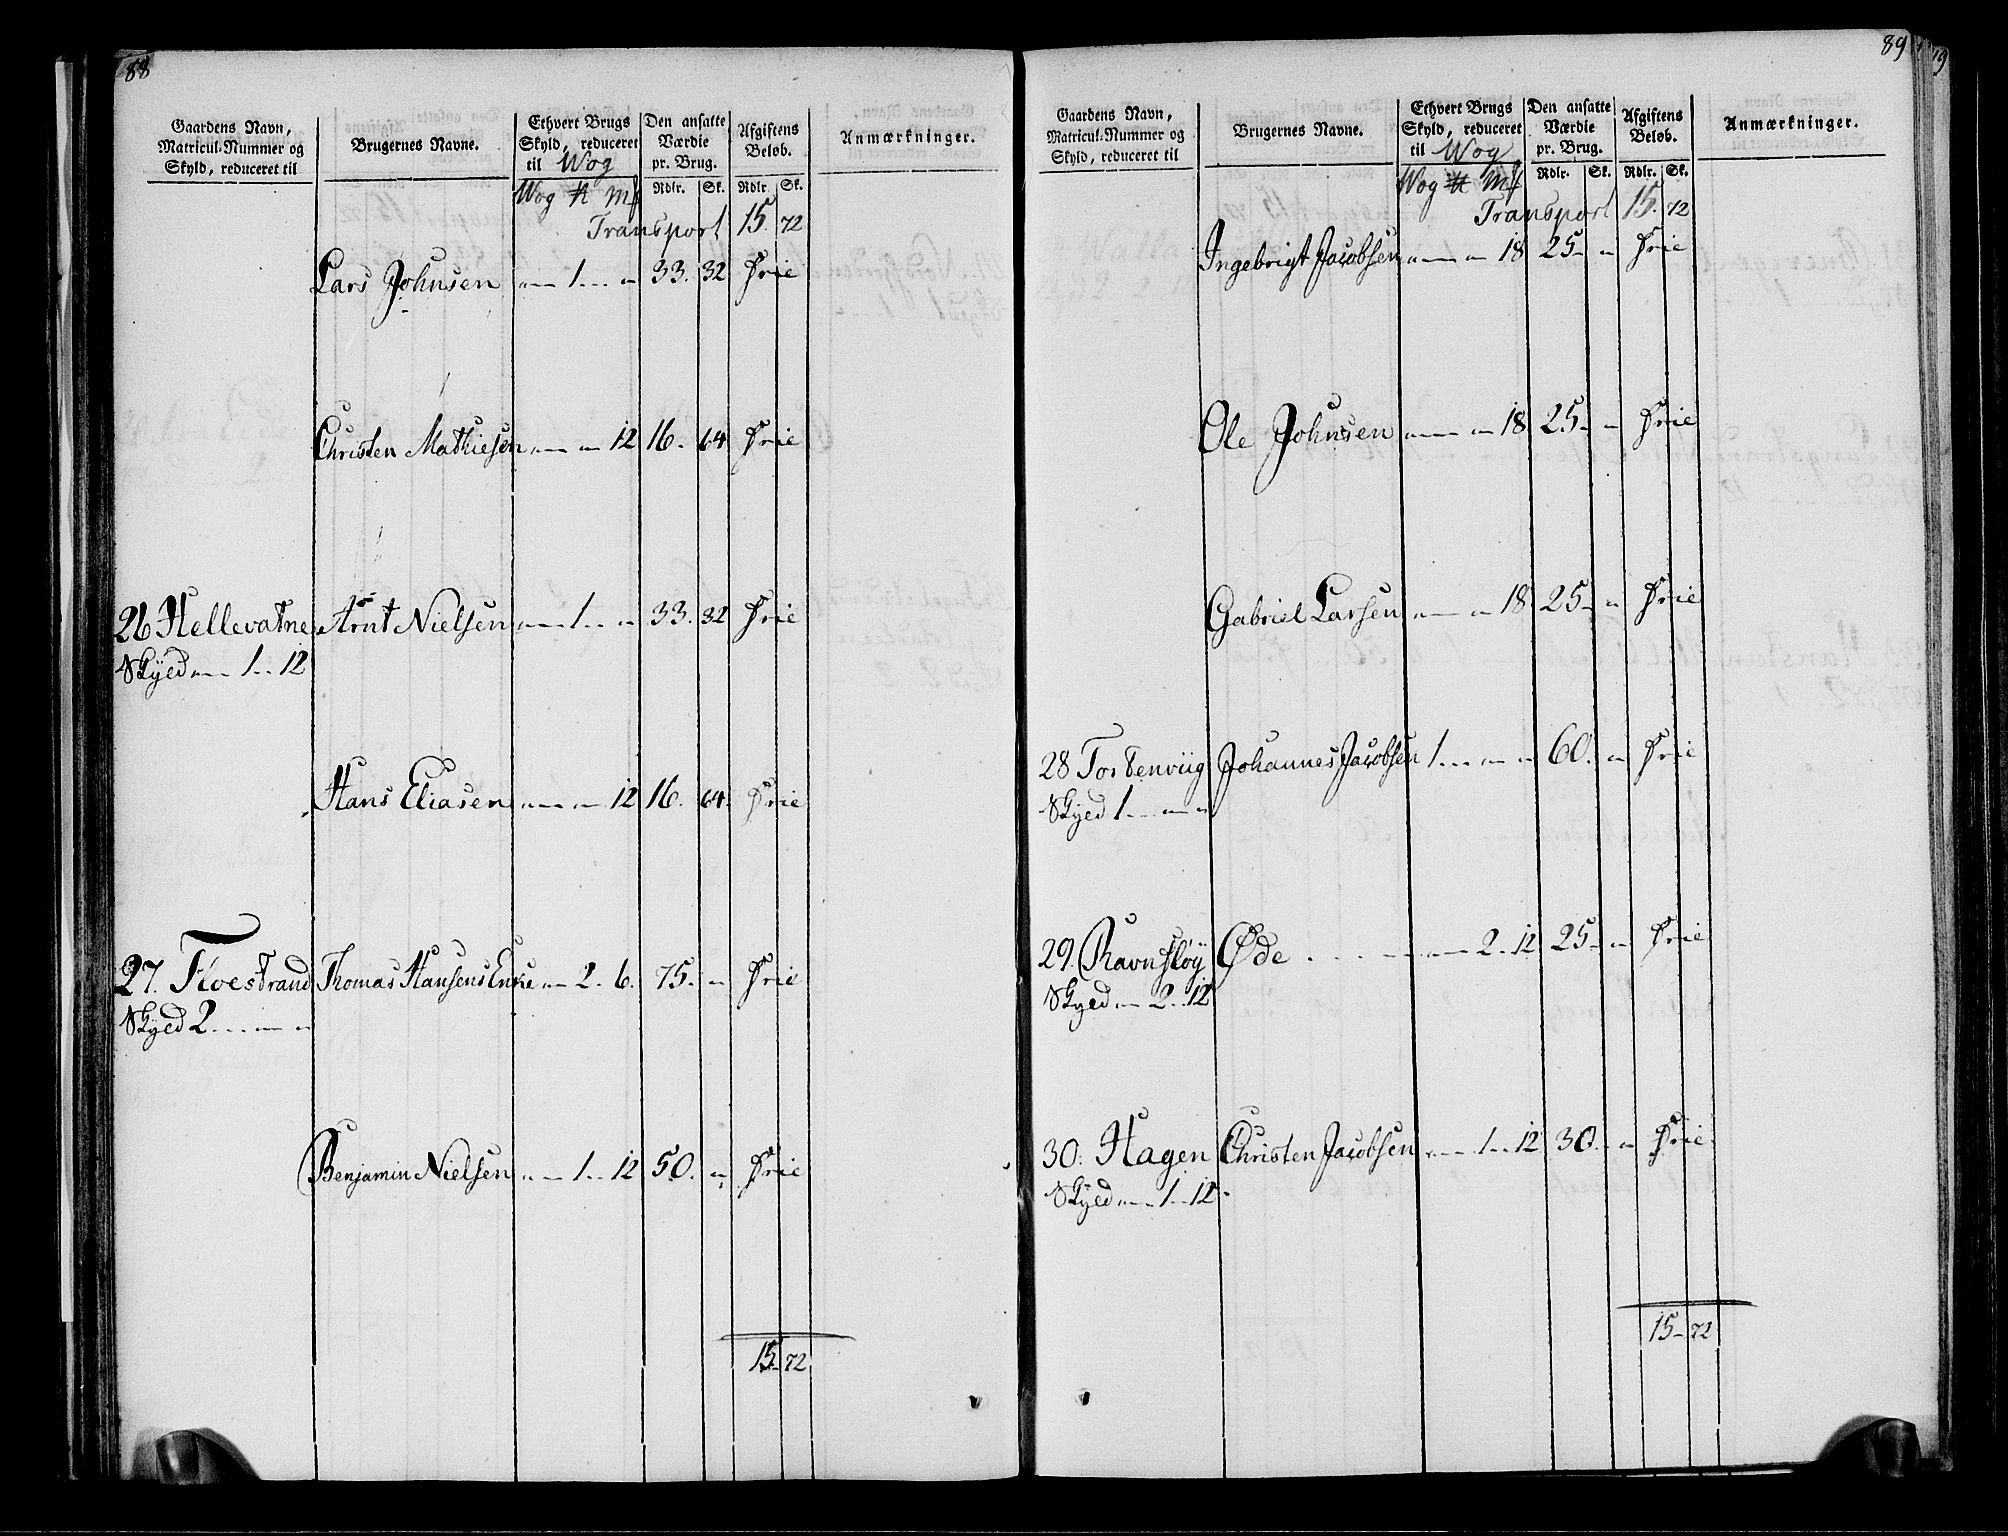 88
Gaardens Navn, Matricul-Nummer og Skyld, reduceret til
Brugernes Navne.
Ethvert Brugs Skyld, reduceret til Wog
Den ansatte Værdie pr. Brug.
Afgiftens Beløb.
Anmærkninger.
Wog ℔ Mk Rdlr. Sk. Rdlr. Sk.
Transport 15. 72
Lars Johnsen „ — 1 .. „ 33. 32 Frie
Christen Mathiesen „ — „ 12 16. 64 Frie
26 Hellevatne Arnt Nielsen „ — 1 .. „ 33. 32 Frie
Skyld „ — 1 .. 12
Hans Eliasen „ — „ 12 16. 64. Frie
27. Floestrand Thomas Hansens Enke „ — 2. 6. 75. „ Frie
Skyld 2 . . . — „
Benjamin Nielsen „ — 1 .. 12 50. „ Frie
15. 72
89
Gaardens Navn, Matricul-Nummer og Skyld, reduceret til
Brugernes Navne.
Ethvert Brugs Skyld, reduceret til Wog
Den ansatte Værdie pr. Brug.
Afgiftens Beløb.
Anmærkninger.
Wog ℔ Mk Rdlr. Sk. Rdlr. Sk.
Transport 15. 72
Ingebrigt Jacobsen „ — „ 18 25 - „ Frie
Ole Johnsen „ — „ 18 25 - „ Frie
Gabriel Larsen „ — „ 18 25 - „ Frie
28 Torbenviig Johannes Jacobsen 1 . . . „ — „ 60. „ Frie
Skyld 1 . . . — „
29. Ravnsløy Øde . . . . — „ — 2 .. 12 25 - „ Frie
Skyld „ — 2 .. 12
30. Hagen Christen Jacobsen „ — 1 .. 12 30. „ Frie
Skyld „ — 1 .. 12.
15 - 72